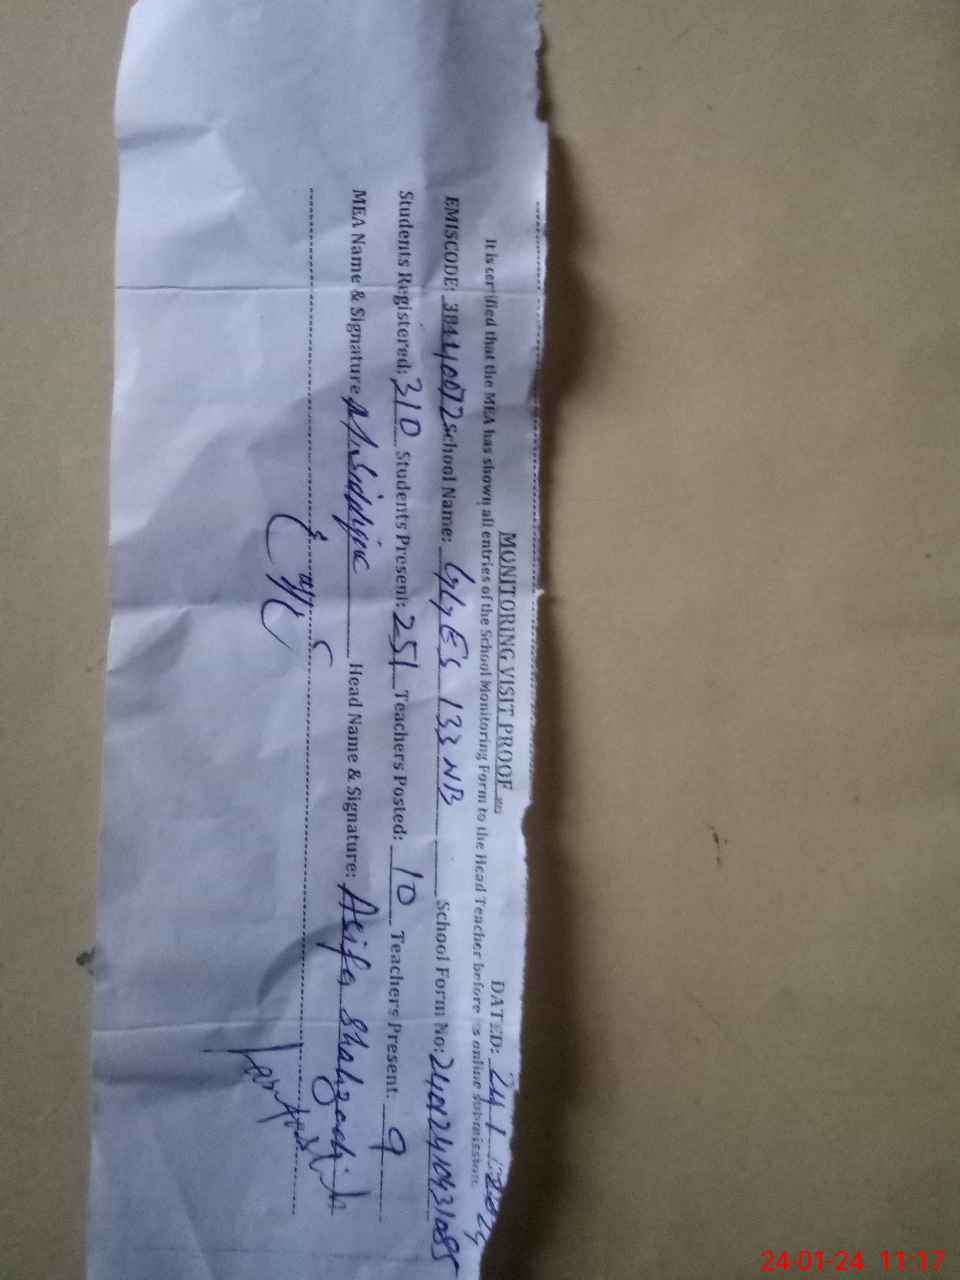 MONITORING VISIT PROOF DATED: 24 1 2024
It is certified that the MEA has shown all entries of the School Monitoring Form to the Head Teacher before online submission.
EMISCODE: 38440072 School Name: GGES 133 NB School Form No: 2401241043
Students Registered: 310 Students Present: 251 Teachers Posted: 10 Teachers Present. 9
MEA Name & Signature Head Name & Signature: Asifa Shahzadi
24-01-24 11:17